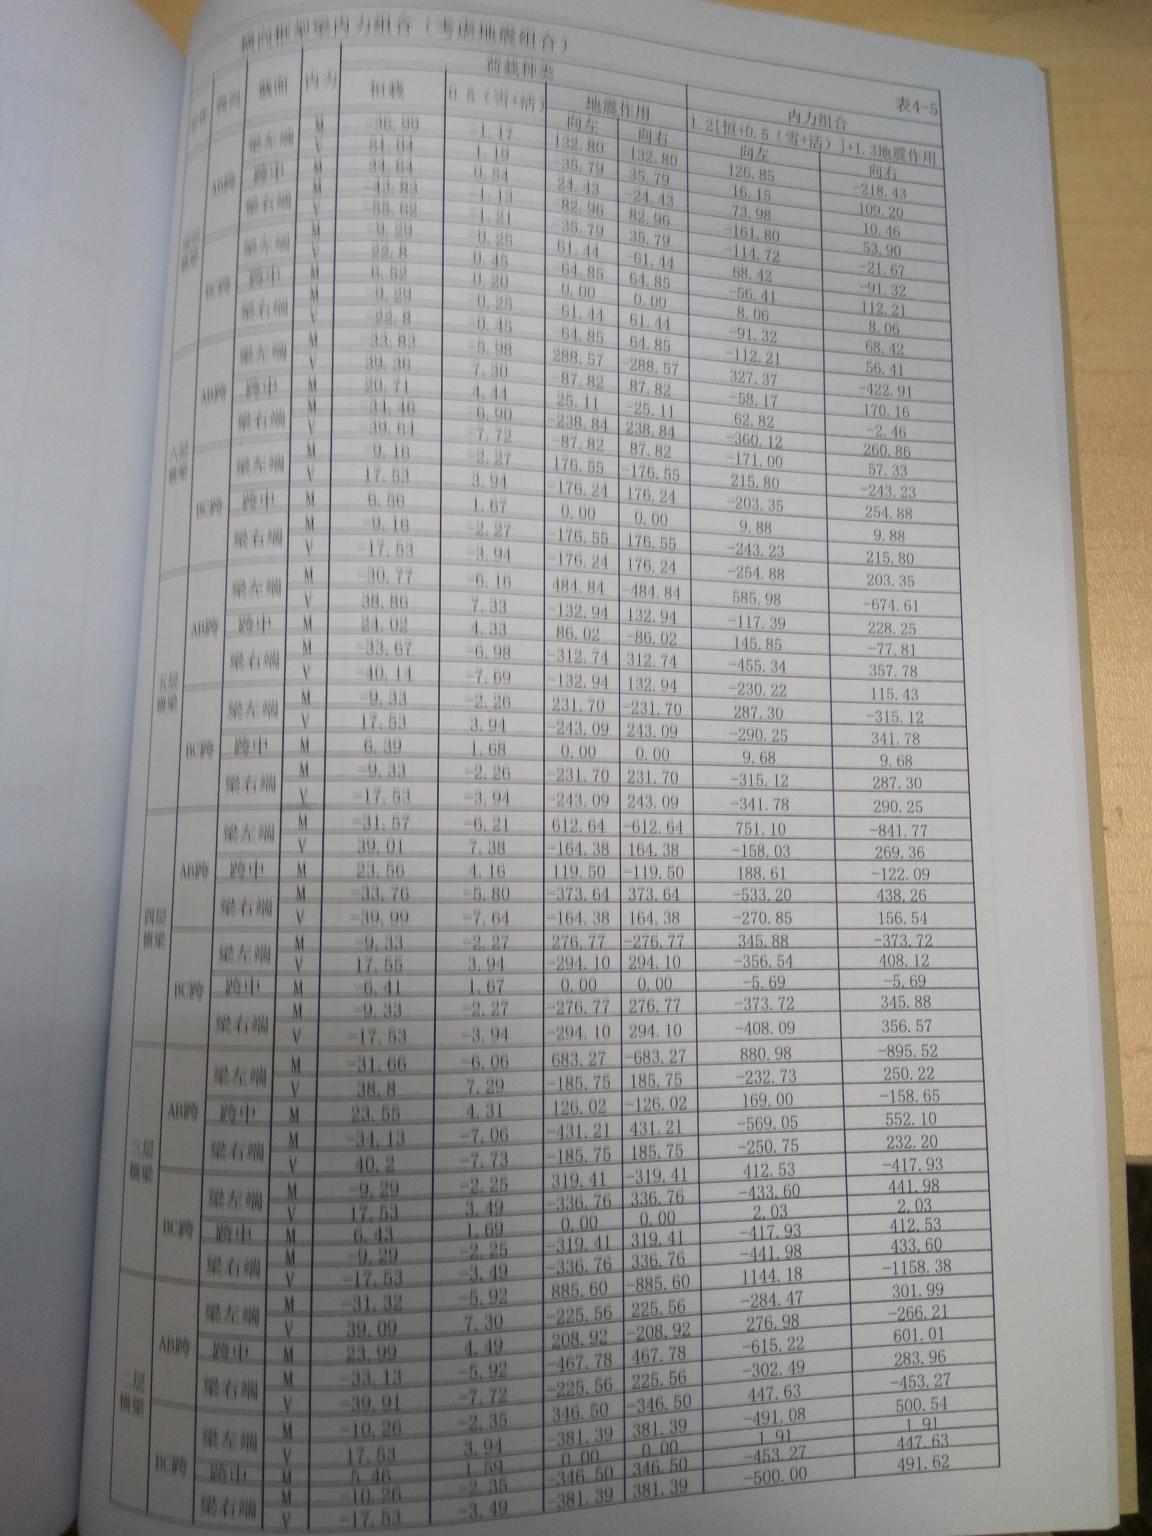 横向框架梁内力组合（考虑地震组合）
表4-5
荷载种类 内力组合
内力 恒载 地震作用 1.2[恒+0.5（雪+活）]+1.3地震作用
向左 向右 向左 向右
AB跨 梁左端 M -1.17 132.80 -132.80 126.85 -218.43
V 1.19 -35.79 35.79 16.15 109.20
跨中 M 24.43 -24.43 73.98 10.46
梁右端 M -1.13 -82.96 82.96 -161.80 53.90
V -1.21 -35.79 35.79 -114.72 -21.67
BC跨 梁左端 M 61.44 -61.44 68.42 -91.32
V 22.8 -64.85 64.85 -56.41 112.21
跨中 M 0.20 0.00 0.00 8.06 8.06
梁右端 M -61.44 61.44 -91.32 68.42
V -22.8 -64.85 64.85 -112.21 56.41
六层横梁 AB跨 梁左端 M -5.98 288.57 -288.57 327.37 -422.91
V 39.36 7.30 -87.82 87.82 -58.17 170.16
跨中 M 20.71 4.44 25.11 -25.11 62.82 -2.46
梁右端 M -34.46 -6.90 -238.84 238.84 -360.12 260.86
V -39.64 -7.72 -87.82 87.82 -171.00 57.33
BC跨 梁左端 M -9.16 -2.27 176.55 -176.55 215.80 -243.23
V 17.53 3.94 -176.24 176.24 -203.35 254.88
跨中 M 6.56 1.67 0.00 0.00 9.88 9.88
梁右端 M -9.16 -2.27 -176.55 176.55 -243.23 215.80
V -17.53 -3.94 -176.24 176.24 -254.88 203.35
五层横梁 AB跨 梁左端 M -30.77 -6.16 484.84 -484.84 585.98 -674.61
V 38.86 7.33 -132.94 132.94 -117.39 228.25
跨中 M 24.02 4.33 86.02 -86.02 145.85 -77.81
梁右端 M -33.67 -6.98 -312.74 312.74 -455.34 357.78
V -40.14 -7.69 -132.94 132.94 -230.22 115.43
BC跨 梁左端 M -9.33 -2.26 231.70 -231.70 287.30 -315.12
V 17.53 3.94 -243.09 243.09 -290.25 341.78
跨中 M 6.39 1.68 0.00 0.00 9.68 9.68
梁右端 M -9.33 -2.26 -231.70 231.70 -315.12 287.30
V -17.53 -3.94 -243.09 243.09 -341.78 290.25
四层横梁 AB跨 梁左端 M -31.57 -6.21 612.64 -612.64 751.10 -841.77
V 39.01 7.38 -164.38 164.38 -158.03 269.36
跨中 M 23.56 4.16 119.50 -119.50 188.61 -122.09
梁右端 M -33.76 -5.80 -373.64 373.64 -533.20 438.26
V -39.99 -7.64 -164.38 164.38 -270.85 156.54
BC跨 梁左端 M -9.33 -2.27 276.77 -276.77 345.88 -373.72
V 17.55 3.94 -294.10 294.10 -356.54 408.12
跨中 M -6.41 1.67 0.00 0.00 -5.69 -5.69
梁右端 M -9.33 -2.27 -276.77 276.77 -373.72 345.88
V -17.53 -3.94 -294.10 294.10 -408.09 356.57
三层横梁 AB跨 梁左端 M -31.66 -6.06 683.27 -683.27 880.98 -895.52
V 38.8 7.29 -185.75 185.75 -232.73 250.22
跨中 M 23.55 4.31 126.02 -126.02 169.00 -158.65
梁右端 M -34.13 -7.06 -431.21 431.21 -569.05 552.10
V 40.2 -7.73 -185.75 185.75 -250.75 232.20
BC跨 梁左端 M -9.29 -2.25 319.41 -319.41 412.53 -417.93
V 17.53 3.49 -336.76 336.76 -433.60 441.98
跨中 M 6.43 1.69 0.00 0.00 2.03 2.03
梁右端 M -9.29 -2.25 -319.41 319.41 -417.93 412.53
V -17.53 -3.49 -336.76 336.76 -441.98 433.60
二层横梁 AB跨 梁左端 M -31.32 -5.92 885.60 -885.60 1144.18 -1158.38
V 39.09 7.30 -225.56 225.56 -284.47 301.99
跨中 M 23.99 4.49 208.92 -208.92 276.98 -266.21
梁右端 M -33.13 -5.92 -467.78 467.78 -615.22 601.01
V -39.91 -7.72 -225.56 225.56 -302.49 283.96
BC跨 梁左端 M -10.26 -2.35 346.50 -346.50 447.63 -453.27
V 17.53 3.94 -381.39 381.39 -491.08 500.54
跨中 M 5.46 1.59 0.00 0.00 1.91 1.91
梁右端 M -10.26 -2.35 -346.50 346.50 -453.27 447.63
V -17.53 -3.49 -381.39 381.39 -500.00 491.62